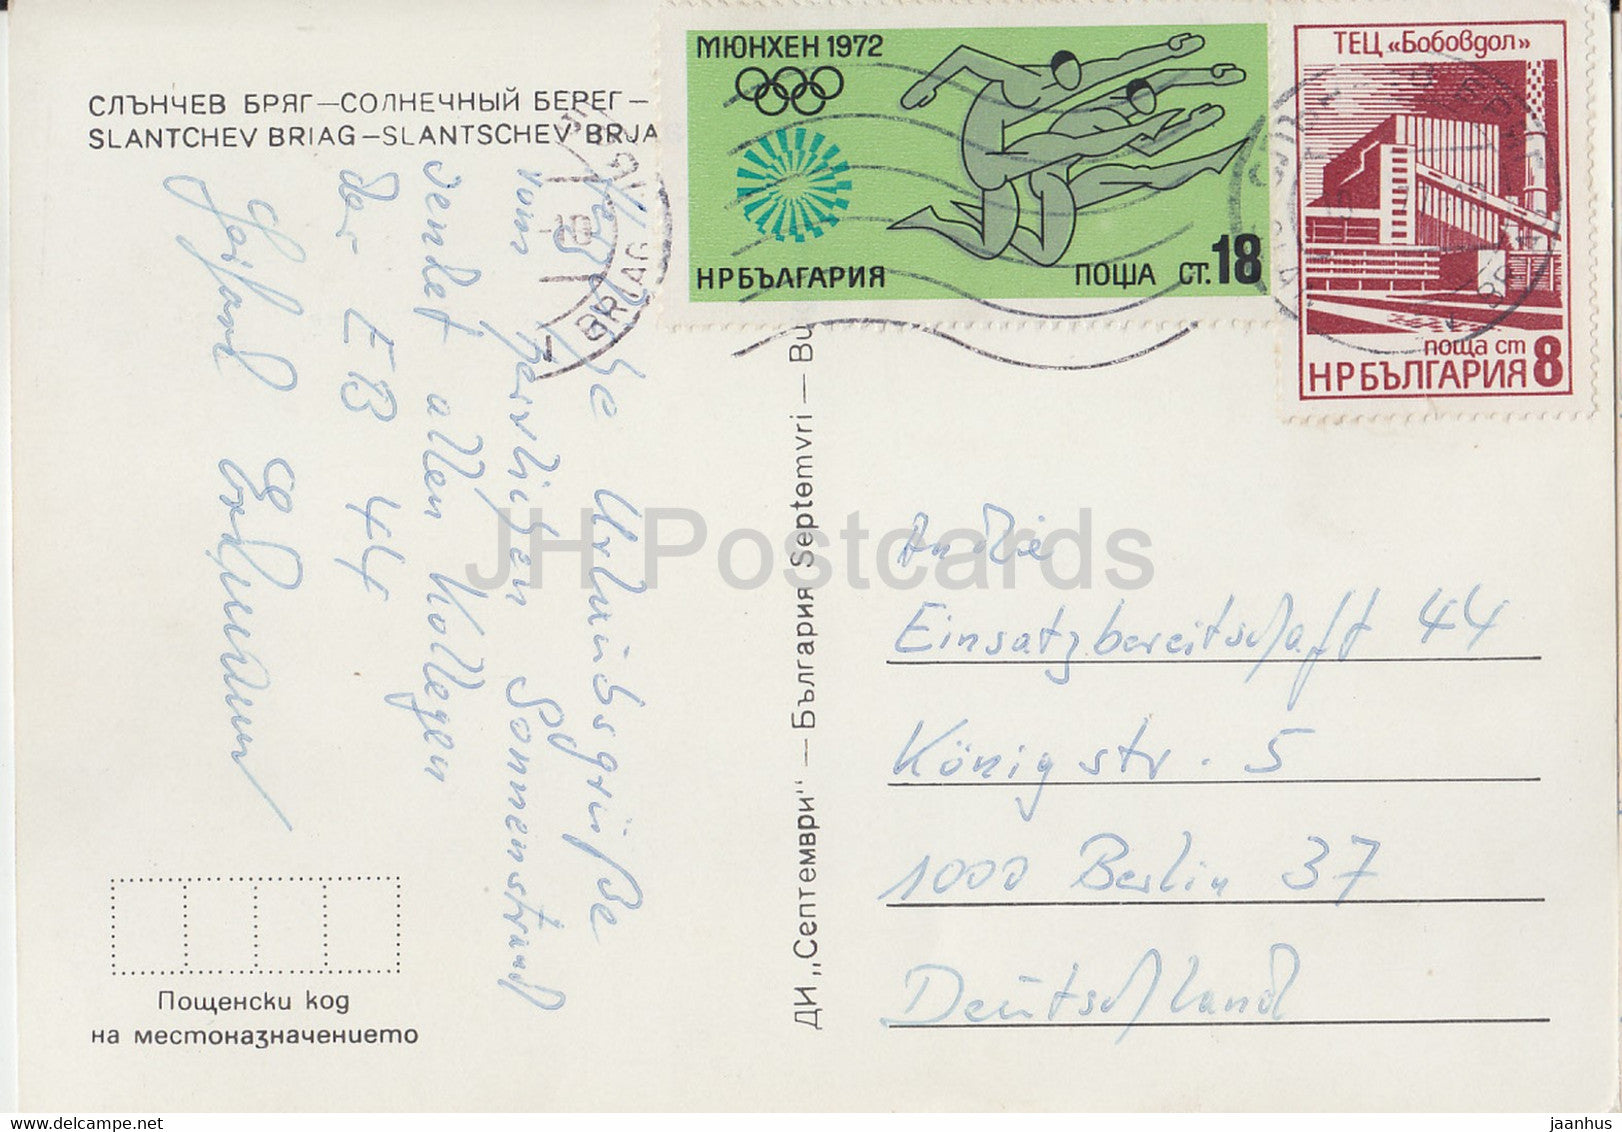 СЛЪНЧЕВ БРЯГ—СОЛНЕЧНЫЙ БЕРЕГ—
SLANTCHEV BRIAG—SLANTSCHEV BRJA
МЮНХЕН 1972
НРБЪЛГАРИЯ
ПОЩА СТ. 18
ТЕЦ «Бобовдол»
поща ст
НРБЪЛГАРИЯ 8
BRIAG
Urlaubsgrüße
vom herrlichen Sonnenstrand
sendet allen Kollegen
der EB 44
ДИ „Септември" — България Septemvri — Bu
An die
Einsatzbereitschaft 44
Königstr. 5
1000 Berlin 37
Deutschland
Пощенски код
на местоназначението
JH Postcards
www.delcampe.net
jaanhus